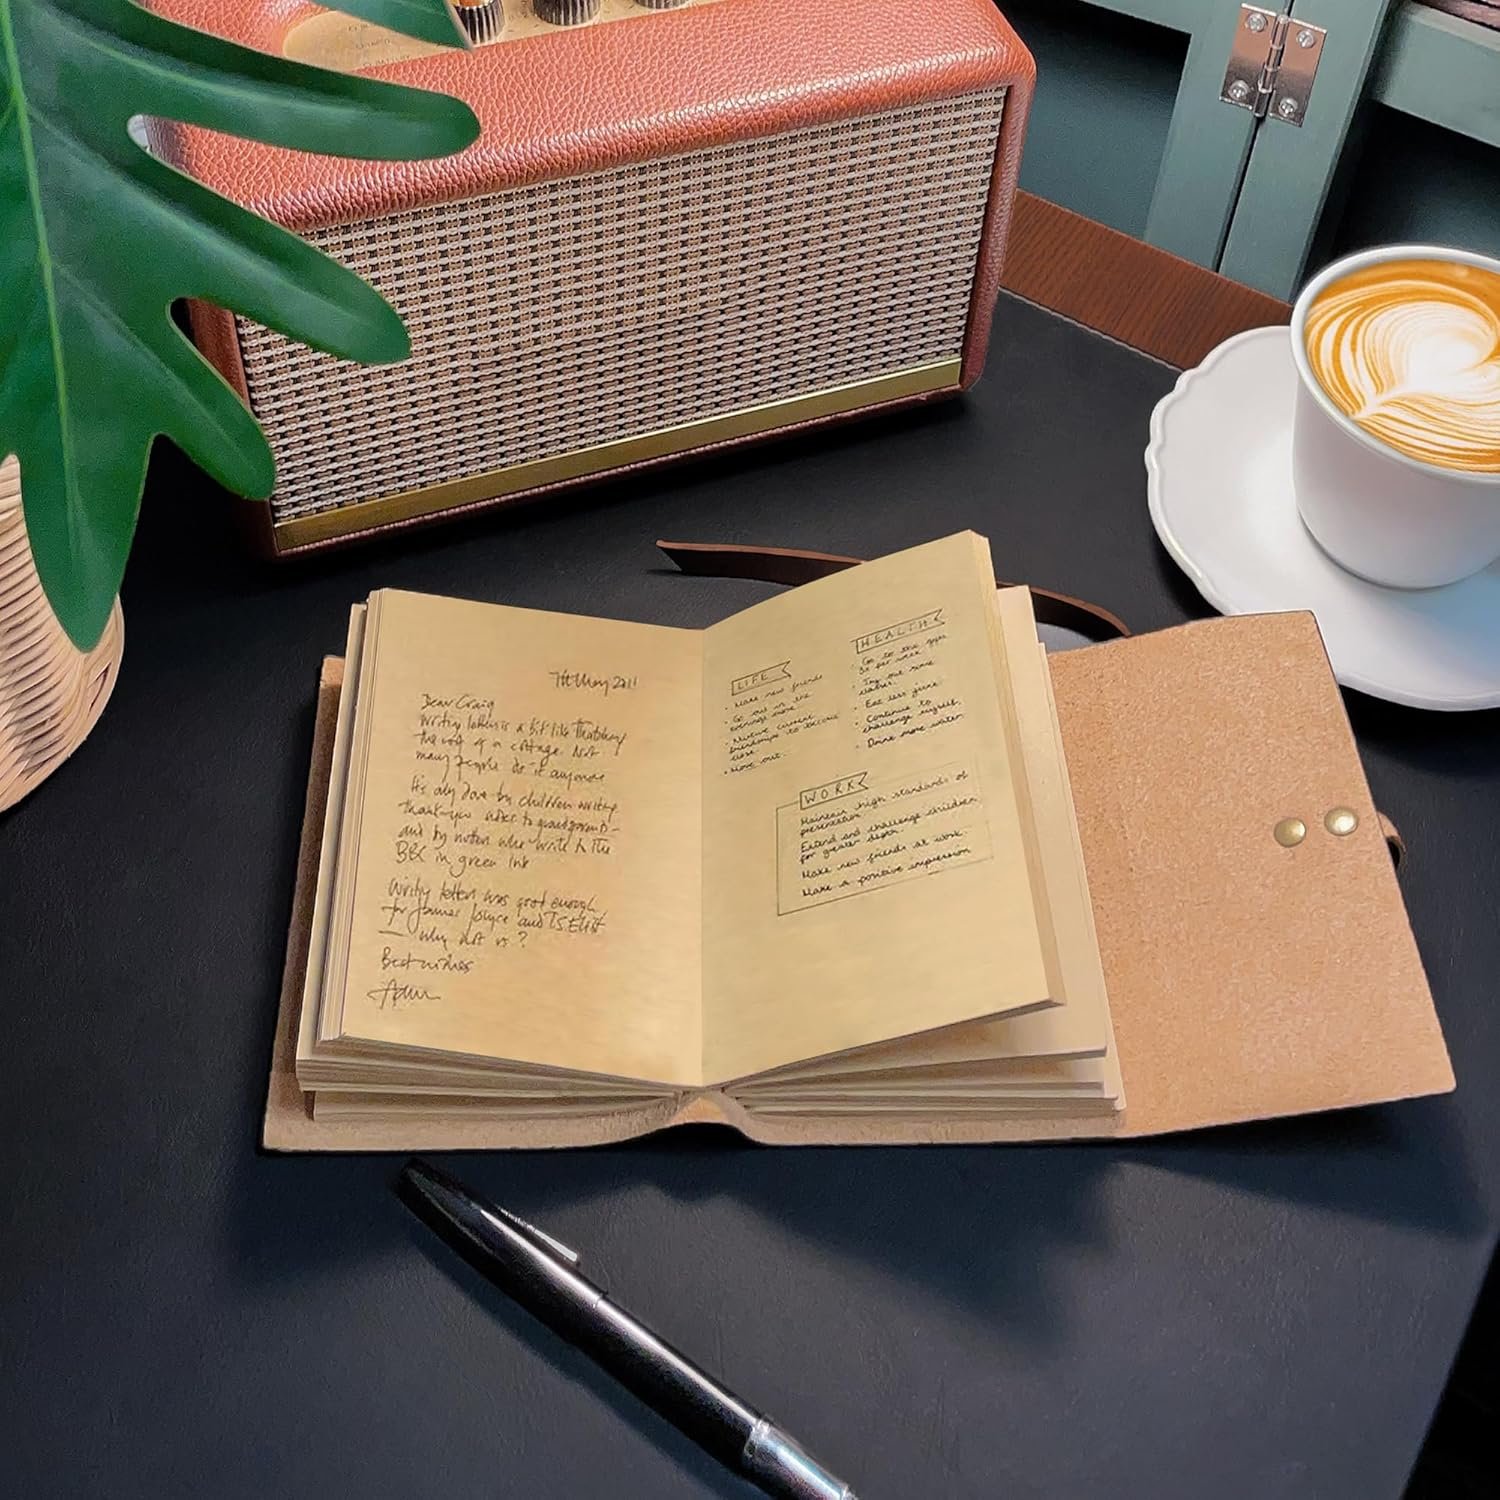 7th May 2011
Dear Craig
Writing letters is a bit like thatching
the roof of a cottage. Not
many people do it anymore
It's only done by children writing
thank-you notes to grandparents –
and by nutters who write to the
BBC in green ink
Writing letters was good enough
for James Joyce and T.S. Eliot
— why not us?
Best wishes
LIFE
• Make new friends
• Go out in the
evenings more.
• Nurture current
friendships to become
close.
• Move out.
HEALTH
• Go to the gym
3x per week.
• Try out some
classes.
• Eat less junk.
• Continue to
challenge myself.
• Drink more water.
WORK
Maintain high standards of
presentation.
Extend and challenge children
for greater depth.
Make new friends at work.
Make a positive impression